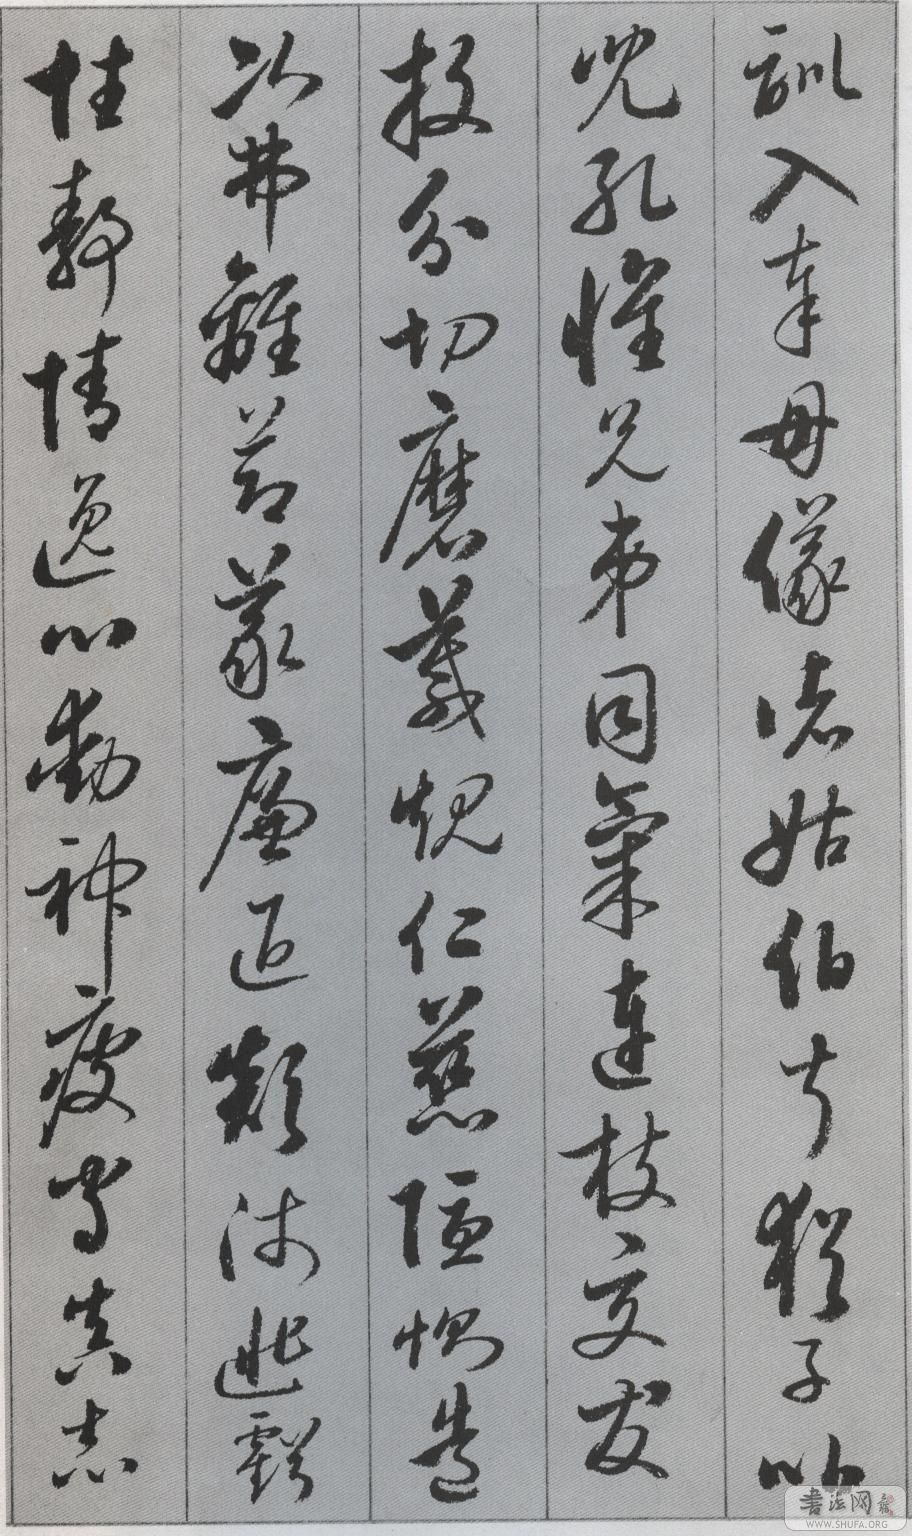 訓入奉母儀諸姑伯叔猶子比
兒孔懷兄弟同氣連枝交友
投分切磨箴規仁慈隱惻造
次弗離節義廉退顛沛匪虧
性靜情逸心動神疲守真志
書法网
WWW.SHUFA.ORG